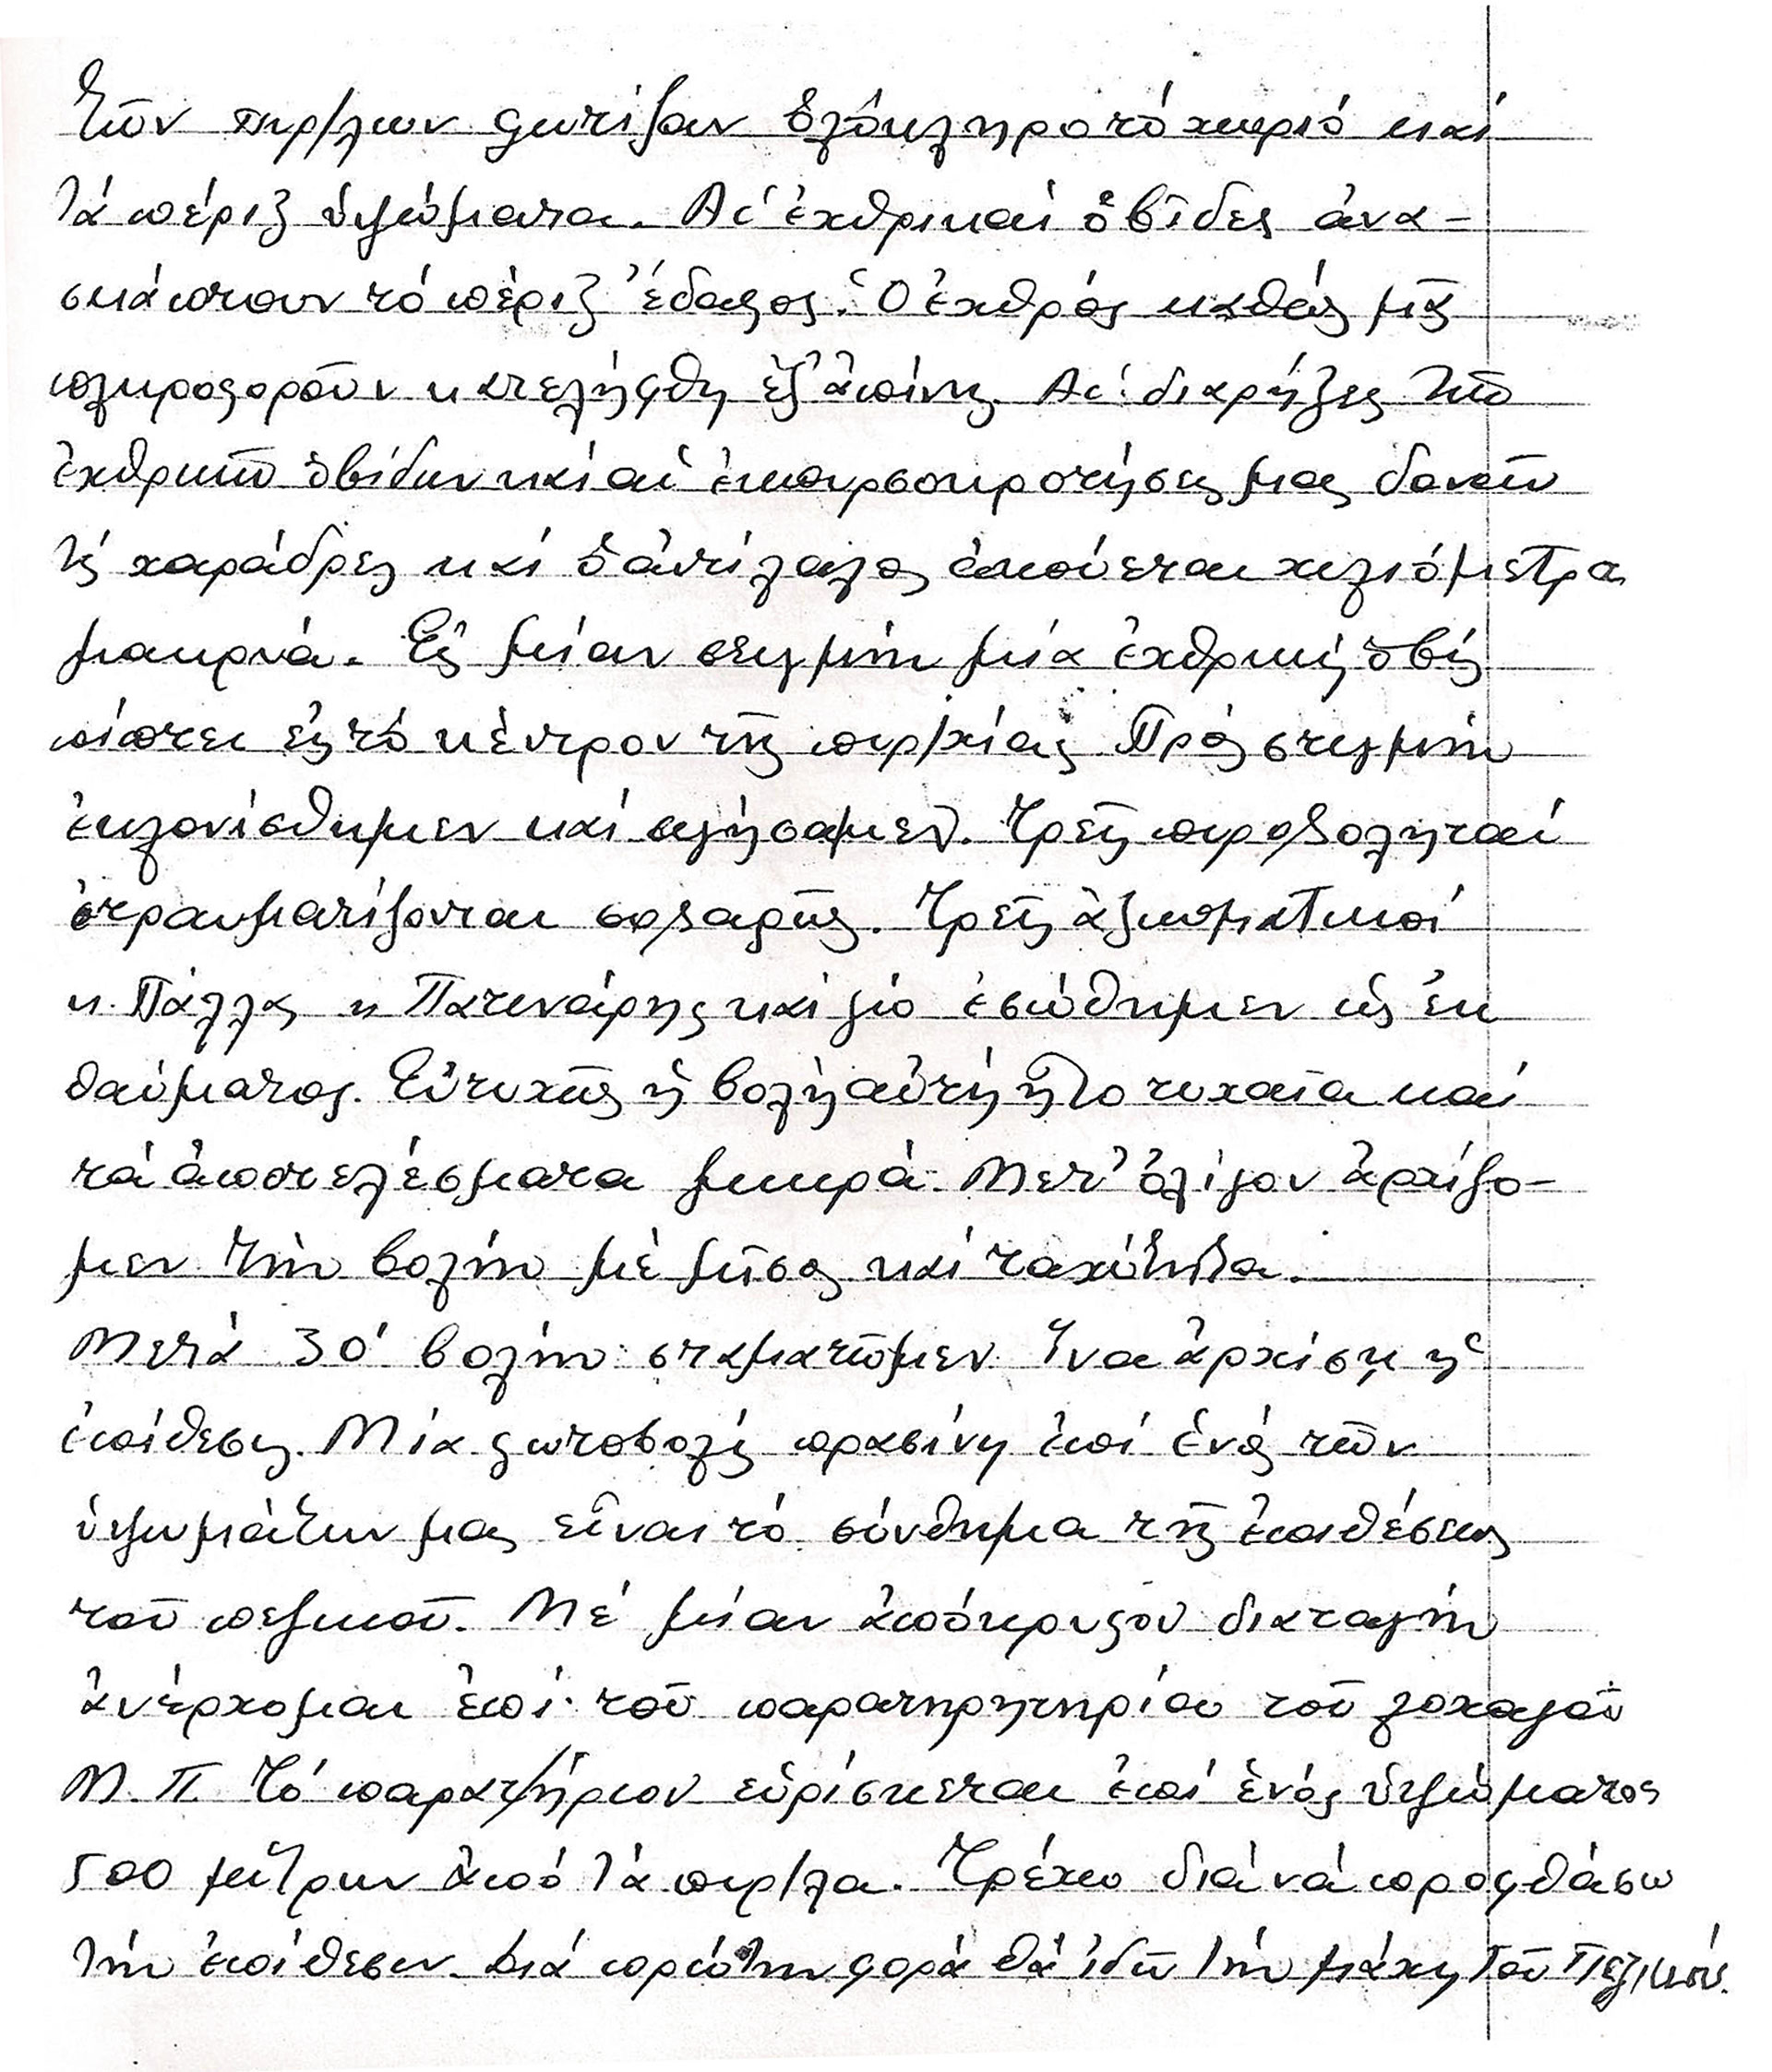 τῶν πυρ/λων φωτίζουν ὁλόκληρο τό χωριό καί
τά πέριξ ὑψώματα. Αἱ ἐχθρικαί ὀβῖδες ἀνα-
σκάπτουν τό πέριξ ἔδαφος. Ὁ ἐχθρός καθώς μᾶς
πληροφοροῦν κατελήφθη ἐξ ἀπίνης. Αἱ διαρήξεις τῶν
ἐχθρικῶν ὀβίδων καί αἱ ἐκπυρσοκροτήσεις μας δονοῦν
τίς χαράδρες καί ὁ ἀντίλαλος ἀκούεται χιλιόμετρα
μακρυά. Εἰς μίαν στιγμήν μία ἐχθρική ὀβίς
πίπτει εἰς τό κέντρον τῆς πυρ/χίας Πρός στιγμήν
ἐκλονίσθημεν καί σιγήσαμεν. Τρεῖς πυροβοληταί
ἐτραυματίζονται σοβαρῶς. Τρεῖς ἀξιωματικοί
κ. Πάλλας κ Πατεναίρης καί ἐγώ ἐσώθημεν ὡς ἐκ
θαύματος. Εὐτυχῶς ἡ βολή αὐτή ἦτο τυχαῖα καί
τά ἀποτελέσματα μικρά. Μετ' ὀλίγον ἀρχίζο-
μεν τήν βολήν μέ μῖσος καί ταχύτητα.
Μετά 30' βολήν σταματῶμεν ἵνα ἀρχίσῃ ἡ
ἐπίθεσις. Μία φωτοβολίς πρασίνη ἐπί ἑνός τῶν
ὑψωμάτων μας εἶναι τό σύνθημα τῆς ἐπιθέσεως
τοῦ πεζικοῦ. Μέ μίαν ἀπόκρυφον διαταγήν
ἀνέρχομαι ἐπί τοῦ παρατηρητηρίου τοῦ λοχαγοῦ
Μ. Π. Τό παρατ/τήριον εὑρίσκεται ἐπί ἑνός ὑψώματος
500 μέτρων ἀπό τά πυρ/λα. Τρέχω διά νά προφθάσω
τήν ἐπίθεσιν. Διά πρώτην φορά θά ἰδῶ τήν μάχη τοῦ Πεζικοῦ.